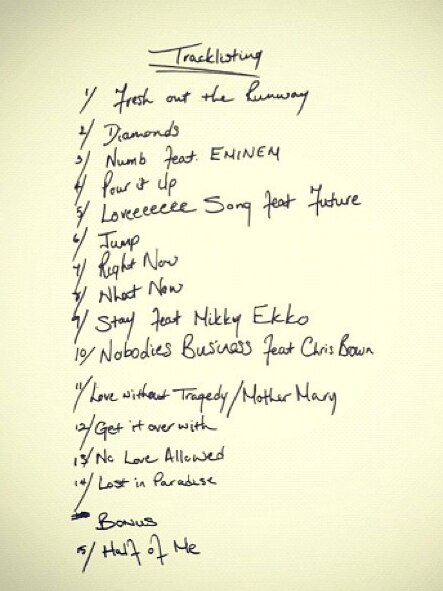 Tracklisting
1/ Fresh out the Runway
2/ Diamonds
3/ Numb feat. EMINEM
4/ Pour it up
5/ Loveeeeeee Song feat Future
6/ Jump
7/ Right Now
8/ What Now
9/ Stay feat Mikky Ekko
10/ Nobodies Business feat Chris Brown
11/ Love without Tragedy/Mother Mary
12/ Get it over with
13/ No Love Allowed
14/ Lost in Paradise
Bonus
15/ Half of Me